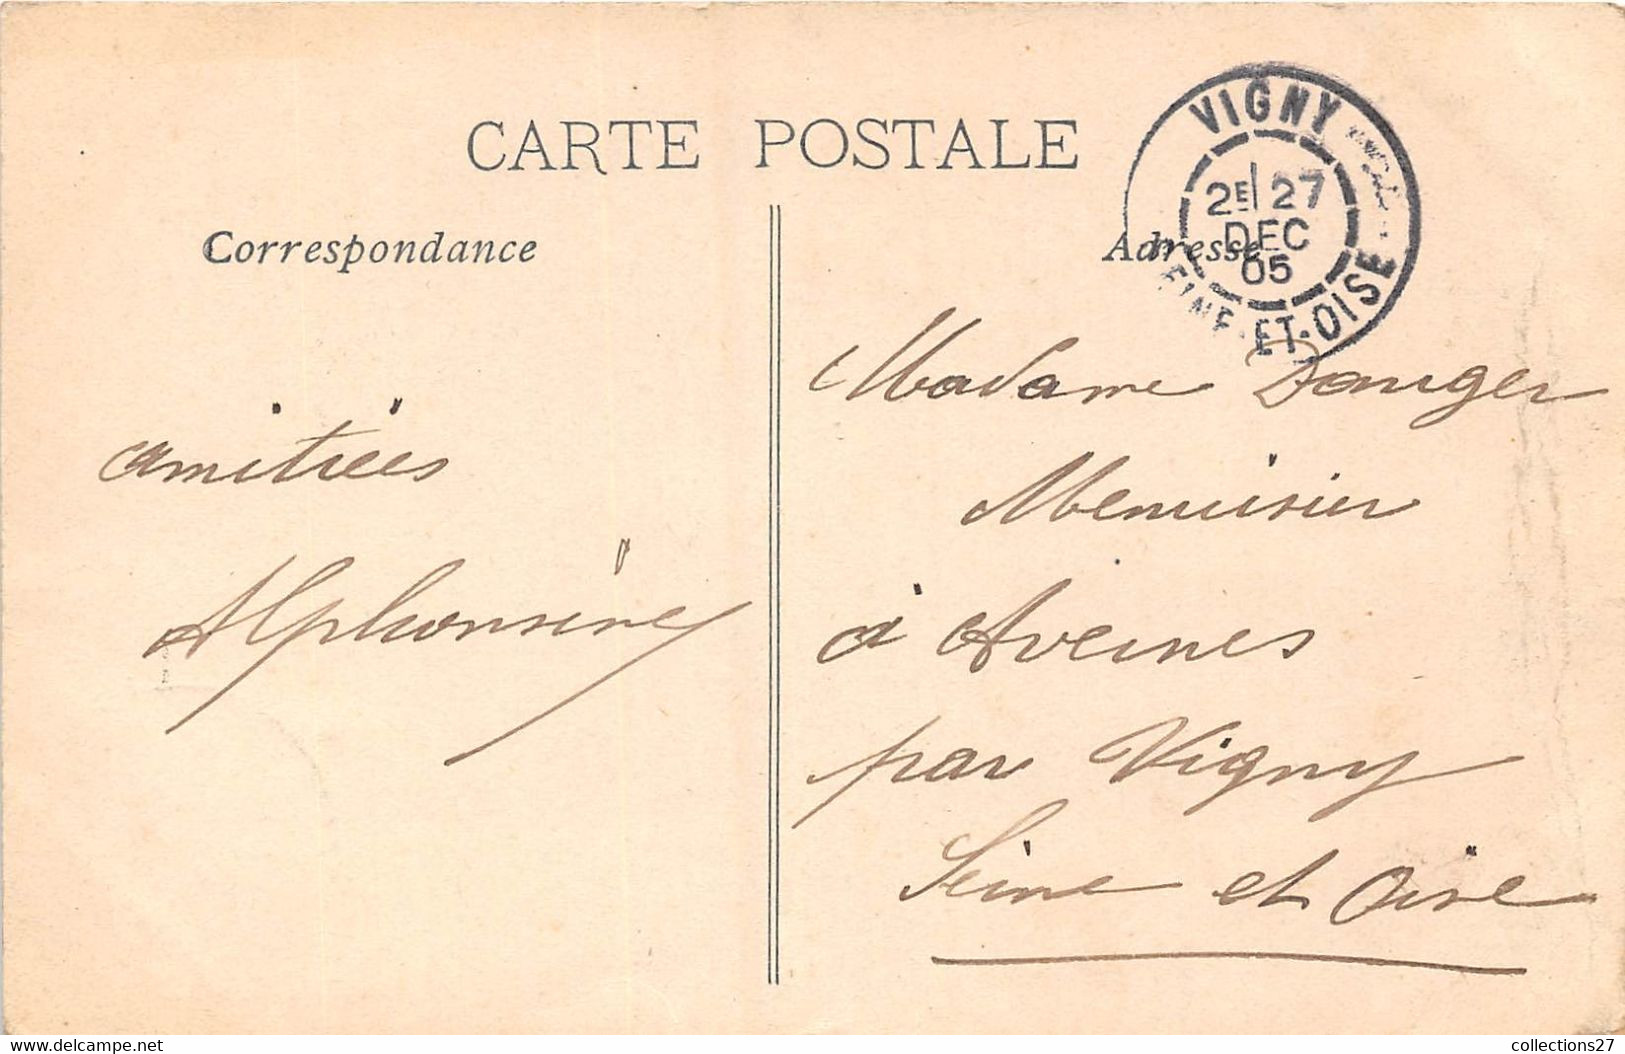 CARTE POSTALE
Correspondance
amitiées
Alphonsine
Adresse
VIGNY
2E 27
DEC
05
SEINE-ET-OISE
Madame Dauger
Menuisier
à Aveines
par Vigny
Seine et Oise
www.delcampe.net
collections27